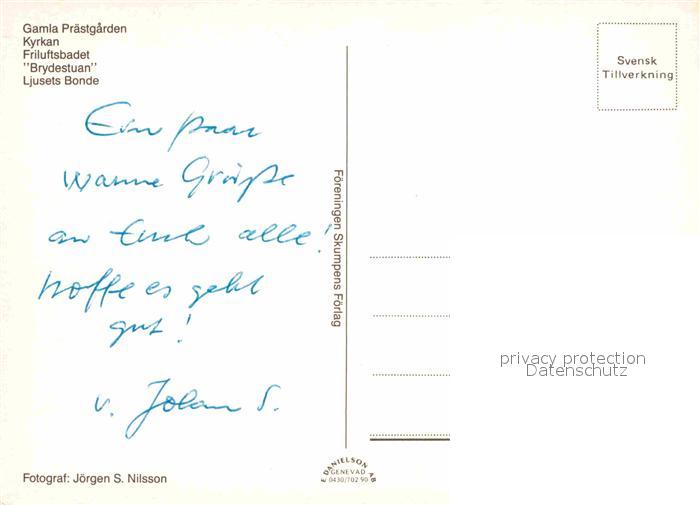 Gamla Prästgården
Kyrkan
Friluftsbadet
"Brydestuan"
Ljusets Bonde
Svensk
Tillverkning
Ein paar
warme Grüße
an Euch alle!
hoffe es geht
gut!
v. S.
Föreningen Skumpens Förlag
privacy protection
Datenschutz
Fotograf: Jörgen S. Nilsson
E DANIELSON AB
GENEVAD
0430/702 90